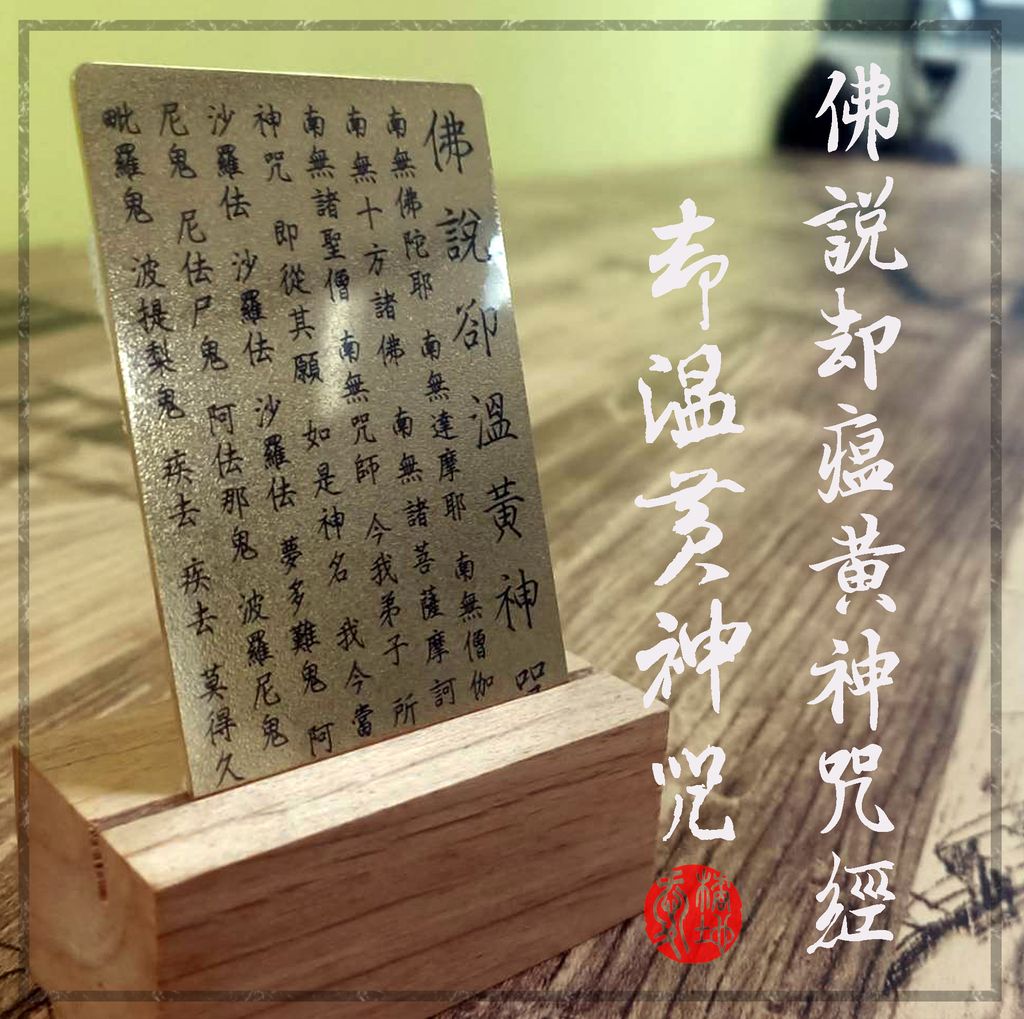 佛説却瘟黄神咒經
却温黄神咒
佛說卻溫黃神咒
南無佛陀耶 南無達摩耶 南無僧伽
南無十方諸佛 南無諸菩薩摩訶
南無諸聖僧 南無咒師 今我弟子 所
神咒 即從其願 如是神名 我今當
沙羅佉 沙羅佉 沙羅佉 夢多難鬼 阿
尼鬼 尼佉尸鬼 阿佉那鬼 波羅尼鬼
毗羅鬼 波提梨鬼 疾去 疾去 莫得久